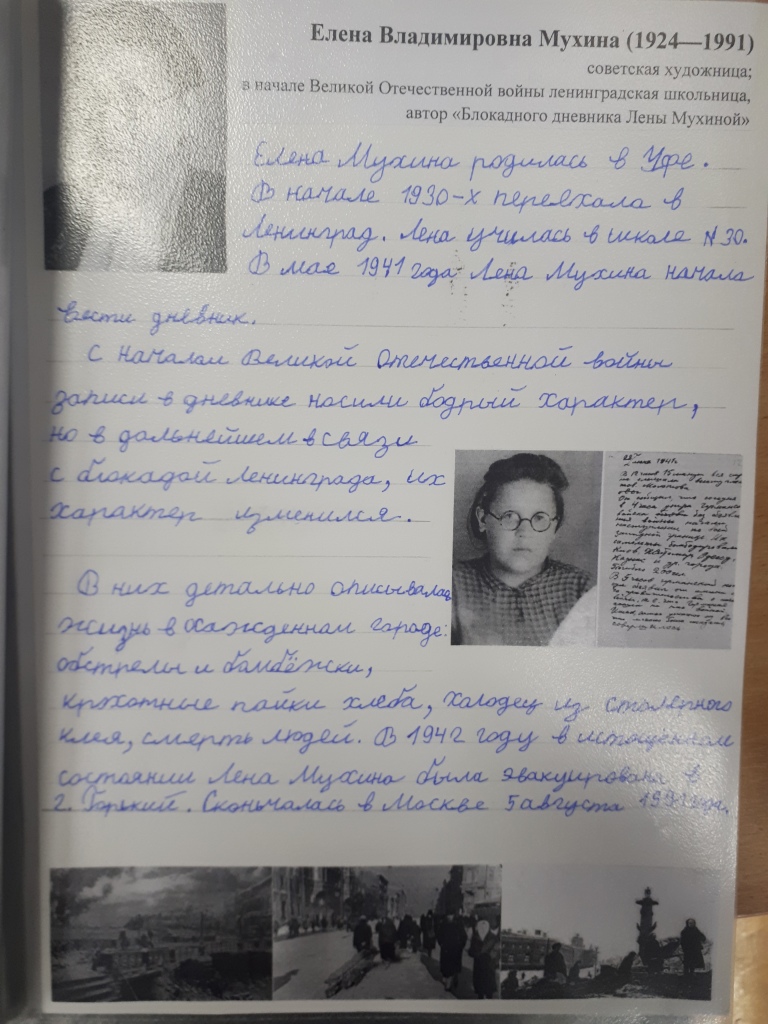 Елена Владимировна Мухина (1924—1991)
советская художница;
в начале Великой Отечественной войны ленинградская школьница,
автор «Блокадного дневника Лены Мухиной»
Елена Мухина родилась в Уфе.
В начале 1930-х переехала в
Ленинград. Лена училась в школе №30.
В мае 1941 года Лена Мухина начала
вести дневник.
С началом Великой Отечественной войны
записи в дневнике носили бодрый характер,
но в дальнейшем в связи
с блокадой Ленинграда, их
характер изменился.
В них детально описывалась
жизнь в осажденном городе:
обстрелы и бомбёжки,
крохотные пайки хлеба, холодец из столярного
клея, смерть людей. В 1942 году в истощенном
состоянии Лена Мухина была эвакуирована в
г. Горький. Скончалась в Москве 5 августа 1991 года.